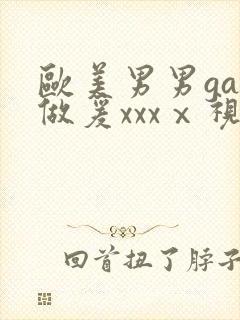 歐美男男ga
做爰xxxⅹ視
回首扭了脖子